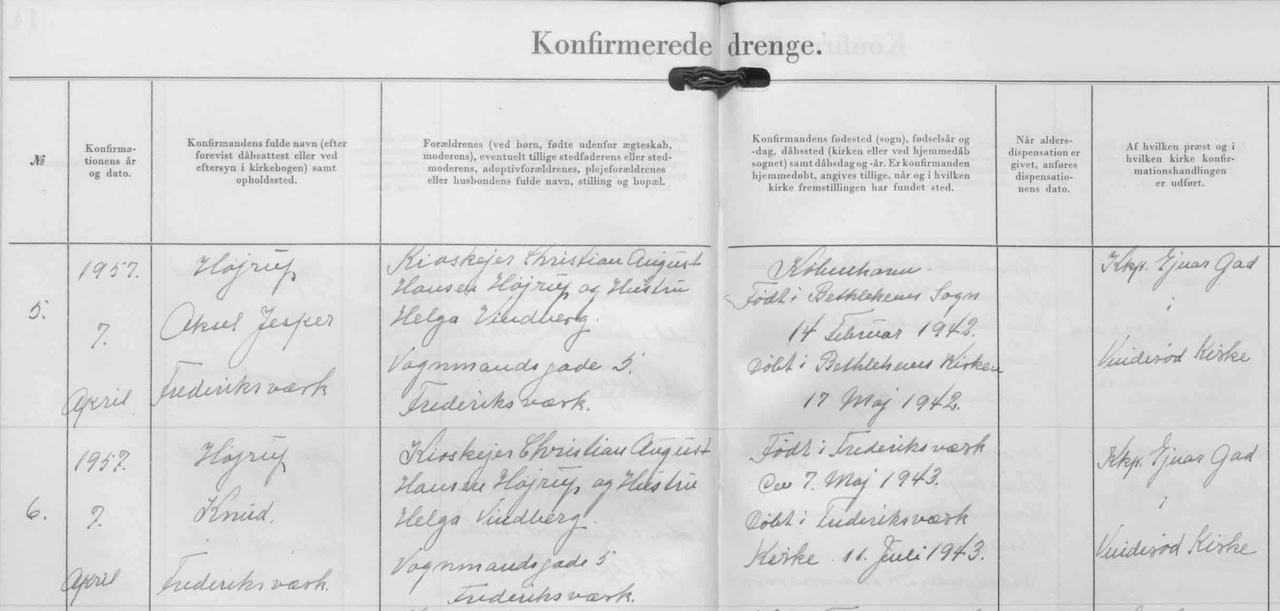 Konfirmerede drenge.
№
Konfirma-
tionens år
og dato.
Konfirmandens fulde navn (efter
forevist dåbsattest eller ved
eftersyn i kirkebogen) samt
opholdssted.
Forældrenes (ved børn, fødte udenfor ægteskab,
moderens), eventuelt tillige stedfaderens eller sted-
moderens, adoptivforældrenes, plejeforældrenes
eller husbondens fulde navn, stilling og bopæl.
Konfirmandens fødested (sogn), fødselsår og
-dag, dåbssted (kirken eller ved hjemmedåb
sognet) samt dåbsdag og -år. Er konfirmanden
hjemmedøbt, angives tillige, når og i hvilken
kirke fremstillingen har fundet sted.
Når alders-
dispensation er
givet, anføres
dispensatio-
nens dato.
Af hvilken præst og i
hvilken kirke konfir-
mationshandlingen
er udført.
5.
1957.
7.
April
Højrup
Aksel Jesper
Frederiksværk
Kioskejer Christian August
Hansen Højrup og Hustru
Helga Vindberg.
Vognmandsgade 5.
Frederiksværk.
København.
Født i Bethlehems Sogn
14 Februar 1942.
Døbt i Bethlehems Kirken
17 Maj 1942.
Kkp. Ejnar Gad
i
Vinderød Kirke
6.
1957.
7.
April
Højrup
Knud.
Frederiksværk.
Kioskejer Christian August
Hansen Højrup og Hustru
Helga Vindberg.
Vognmandsgade 5
Frederiksværk.
Født i Frederiksværk
den 7. Maj 1943.
Døbt i Frederiksværk
Kirke. 11. Juli 1943.
Kkp. Ejnar Gad
i
Vinderød Kirke